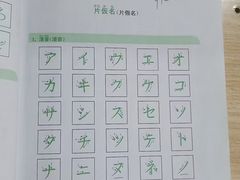 片仮名(片假名)
1. 清音(清音)
ア イ ウ エ オ
カ キ ク ケ コ
サ シ ス セ ソ
タ チ ツ テ ト
ナ ニ ヌ ネ ノ